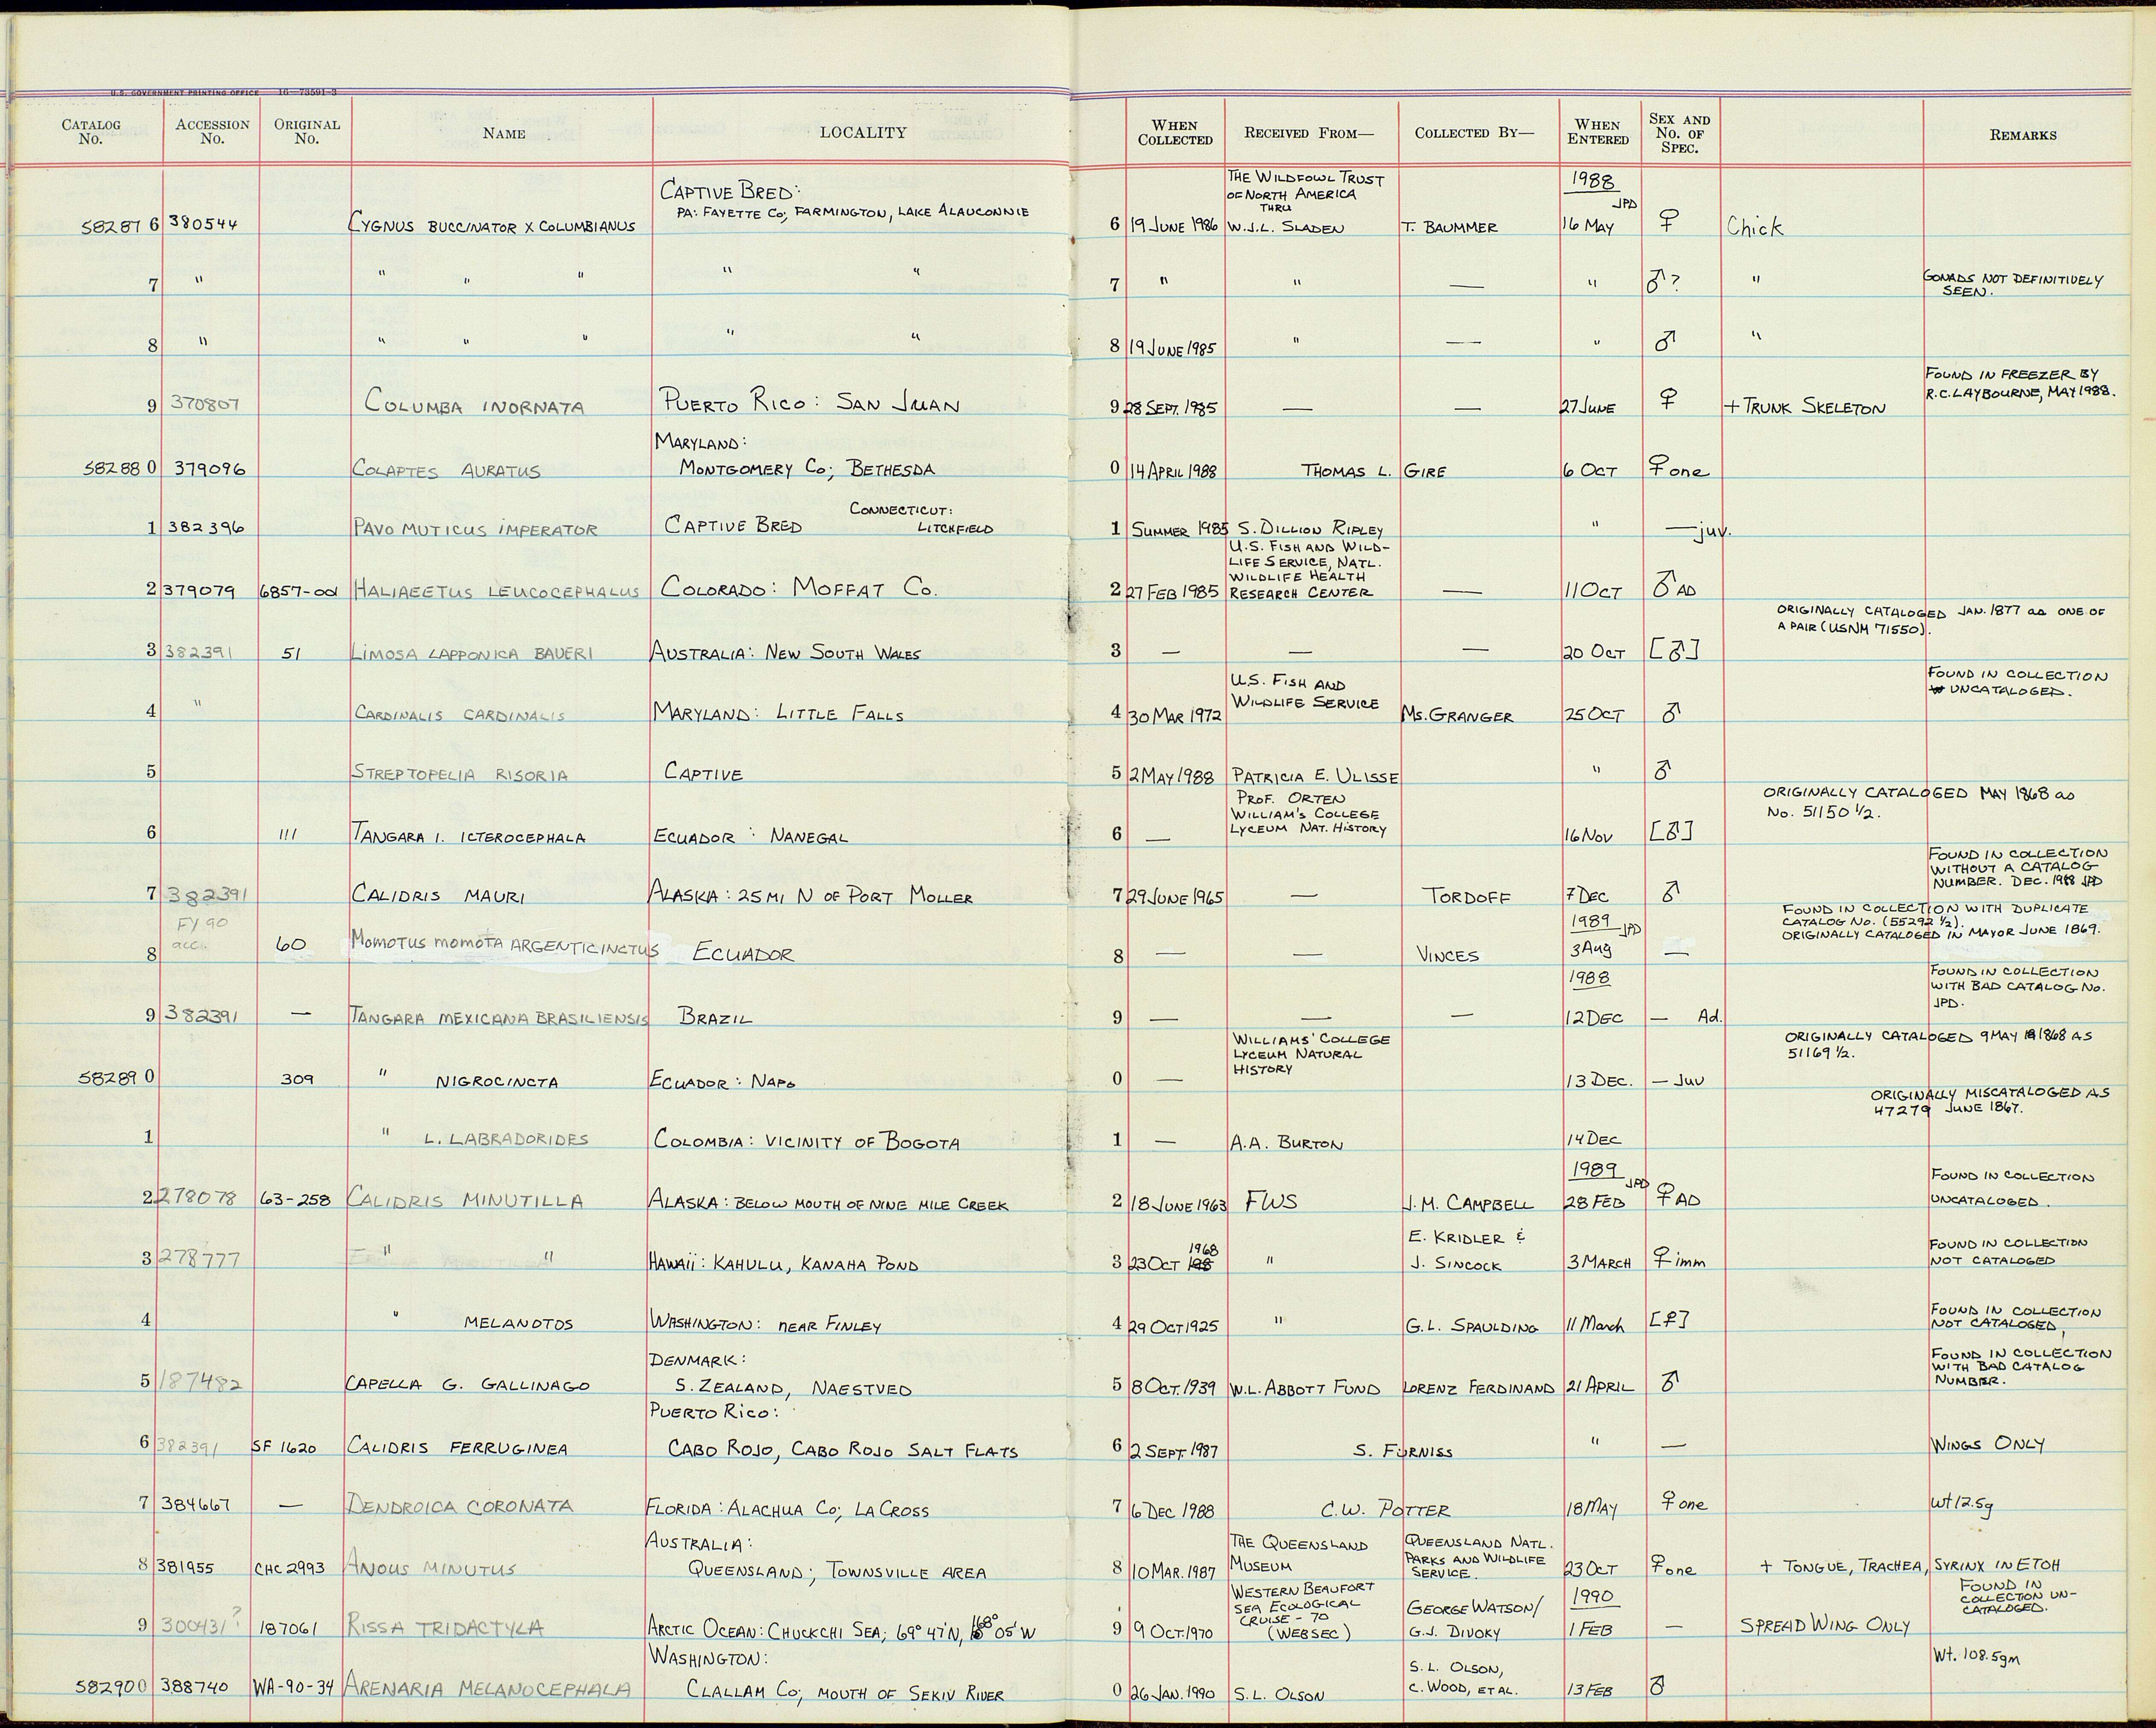 U.S. GOVERNMENT PRINTING OFFICE 16—73591-3
CATALOG No. ACCESSION No. ORIGINAL No. NAME LOCALITY WHEN COLLECTED RECEIVED FROM— COLLECTED BY— WHEN ENTERED SEX AND No. OF SPEC. REMARKS
CAPTIVE BRED: THE WILDFOWL TRUST OF NORTH AMERICA THRU 1988 JPD
582876 380544 CYGNUS BUCCINATOR X COLUMBIANUS PA: FAYETTE CO; FARMINGTON, LAKE ALAUCONNIE 6 19 JUNE 1986 W.J.L. SLADEN T. BAUMMER 16 MAY ♀ Chick
7 " " " " " " 7 " " — " ♂? " GONADS NOT DEFINITIVELY SEEN.
8 " " " " " " 8 19 JUNE 1985 " — " ♂ "
9 370807 COLUMBA INORNATA PUERTO RICO: SAN JUAN 9 28 SEPT. 1985 — — 27 JUNE ♀ + TRUNK SKELETON FOUND IN FREEZER BY R.C. LAYBOURNE, MAY 1988.
MARYLAND:
582880 379096 COLAPTES AURATUS MONTGOMERY CO; BETHESDA 0 14 APRIL 1988 THOMAS L. GIRE 6 OCT ♀ one
CONNECTICUT:
1 382396 PAVO MUTICUS IMPERATOR CAPTIVE BRED LITCHFIELD 1 SUMMER 1985 S. DILLION RIPLEY " — juv.
U.S. FISH AND WILD-
LIFE SERVICE, NATL.
WILDLIFE HEALTH
2 379079 6857-001 HALIAEETUS LEUCOCEPHALUS COLORADO: MOFFAT CO. 2 27 FEB 1985 RESEARCH CENTER — 11 OCT ♂ AD
ORIGINALLY CATALOGED JAN. 1877 as ONE OF
A PAIR (USNM 71550).
3 382391 51 LIMOSA LAPPONICA BAUERI AUSTRALIA: NEW SOUTH WALES 3 — — — 20 OCT [♂]
U.S. FISH AND WILDLIFE SERVICE FOUND IN COLLECTION UNCATALOGED.
4 " CARDINALIS CARDINALIS MARYLAND: LITTLE FALLS 4 30 MAR 1972 MS. GRANGER 25 OCT ♂
5 STREPTOPELIA RISORIA CAPTIVE 5 2 MAY 1988 PATRICIA E. ULISSE " ♂
PROF. ORTEN
WILLIAM'S COLLEGE ORIGINALLY CATALOGED MAY 1868 as
LYCEUM NAT. HISTORY No. 51150 1/2.
6 111 TANGARA I. ICTEROCEPHALA ECUADOR: NANEGAL 6 — 16 NOV [♂]
FOUND IN COLLECTION
WITHOUT A CATALOG
NUMBER. DEC. 1988 JPD
7 382391 CALIDRIS MAURI ALASKA: 25 MI N OF PORT MOLLER 7 29 JUNE 1965 — TORDOFF 7 DEC ♂
FY 90 acc. 1989 JPD FOUND IN COLLECTION WITH DUPLICATE
CATALOG No. (55292 1/2).
ORIGINALLY CATALOGED IN MAY OR JUNE 1869.
8 60 MOMOTUS MOMOTA ARGENTICINCTUS ECUADOR 8 — — VINCES 3 Aug —
1988 FOUND IN COLLECTION
WITH BAD CATALOG No.
JPD.
9 382391 — TANGARA MEXICANA BRASILIENSIS BRAZIL 9 — — — 12 DEC — Ad.
WILLIAMS' COLLEGE
LYCEUM NATURAL
HISTORY
ORIGINALLY CATALOGED 9 MAY 1868 AS
51169 1/2.
582890 309 " NIGROCINCTA ECUADOR: NAPO 0 — 13 DEC. — Juv
ORIGINALLY MISCATALOGED AS
47279 JUNE 1867.
1 " L. LABRADORIDES COLOMBIA: VICINITY OF BOGOTA 1 — A.A. BURTON 14 DEC
1989 JPD
2 278078 63-258 CALIDRIS MINUTILLA ALASKA: BELOW MOUTH OF NINE MILE CREEK 2 18 JUNE 1963 FWS J.M. CAMPBELL 28 FEB ♀ AD FOUND IN COLLECTION UNCATALOGED.
3 278777 " " HAWAII: KAHULU, KANAHA POND 3 23 OCT 1968 " E. KRIDLER & J. SINCOCK 3 MARCH ♀ imm FOUND IN COLLECTION NOT CATALOGED
4 " MELANOTOS WASHINGTON: NEAR FINLEY 4 29 OCT 1925 " G.L. SPAULDING 11 March [♀] FOUND IN COLLECTION NOT CATALOGED,
DENMARK:
5 187482 CAPELLA G. GALLINAGO S. ZEALAND, NAESTVED 5 8 OCT. 1939 W.L. ABBOTT FUND LORENZ FERDINAND 21 APRIL ♂ FOUND IN COLLECTION WITH BAD CATALOG NUMBER.
PUERTO RICO:
6 382391 SF 1620 CALIDRIS FERRUGINEA CABO ROJO, CABO ROJO SALT FLATS 6 2 SEPT. 1987 S. FURNISS " — WINGS ONLY
7 384667 — DENDROICA CORONATA FLORIDA: ALACHUA CO; LA CROSS 7 6 DEC 1988 C.W. POTTER 18 MAY ♀ one Wt 12.5g
AUSTRALIA:
8 381955 CHC 2993 ANOUS MINUTUS QUEENSLAND; TOWNSVILLE AREA 8 10 MAR. 1987 THE QUEENSLAND MUSEUM QUEENSLAND NATL. PARKS AND WILDLIFE SERVICE. 23 OCT ♀ one + TONGUE, TRACHEA, SYRINX IN ETOH
WESTERN BEAUFORT
SEA ECOLOGICAL
CRUISE - 70
(WEBSEC) 1990 FOUND IN
COLLECTION UN-
CATALOGED.
9 300431? 187061 RISSA TRIDACTYLA ARCTIC OCEAN: CHUCKCHI SEA; 69° 47'N, 168° 05'W 9 9 OCT. 1970 GEORGE WATSON/ G.J. DIVOKY 1 FEB — SPREAD WING ONLY
WASHINGTON:
582900 388740 WA-90-34 ARENARIA MELANOCEPHALA CLALLAM CO; MOUTH OF SEKIV RIVER 0 26 JAN. 1990 S.L. OLSON S.L. OLSON, C. WOOD, ET AL. 13 FEB ♂ Wt. 108.5gm